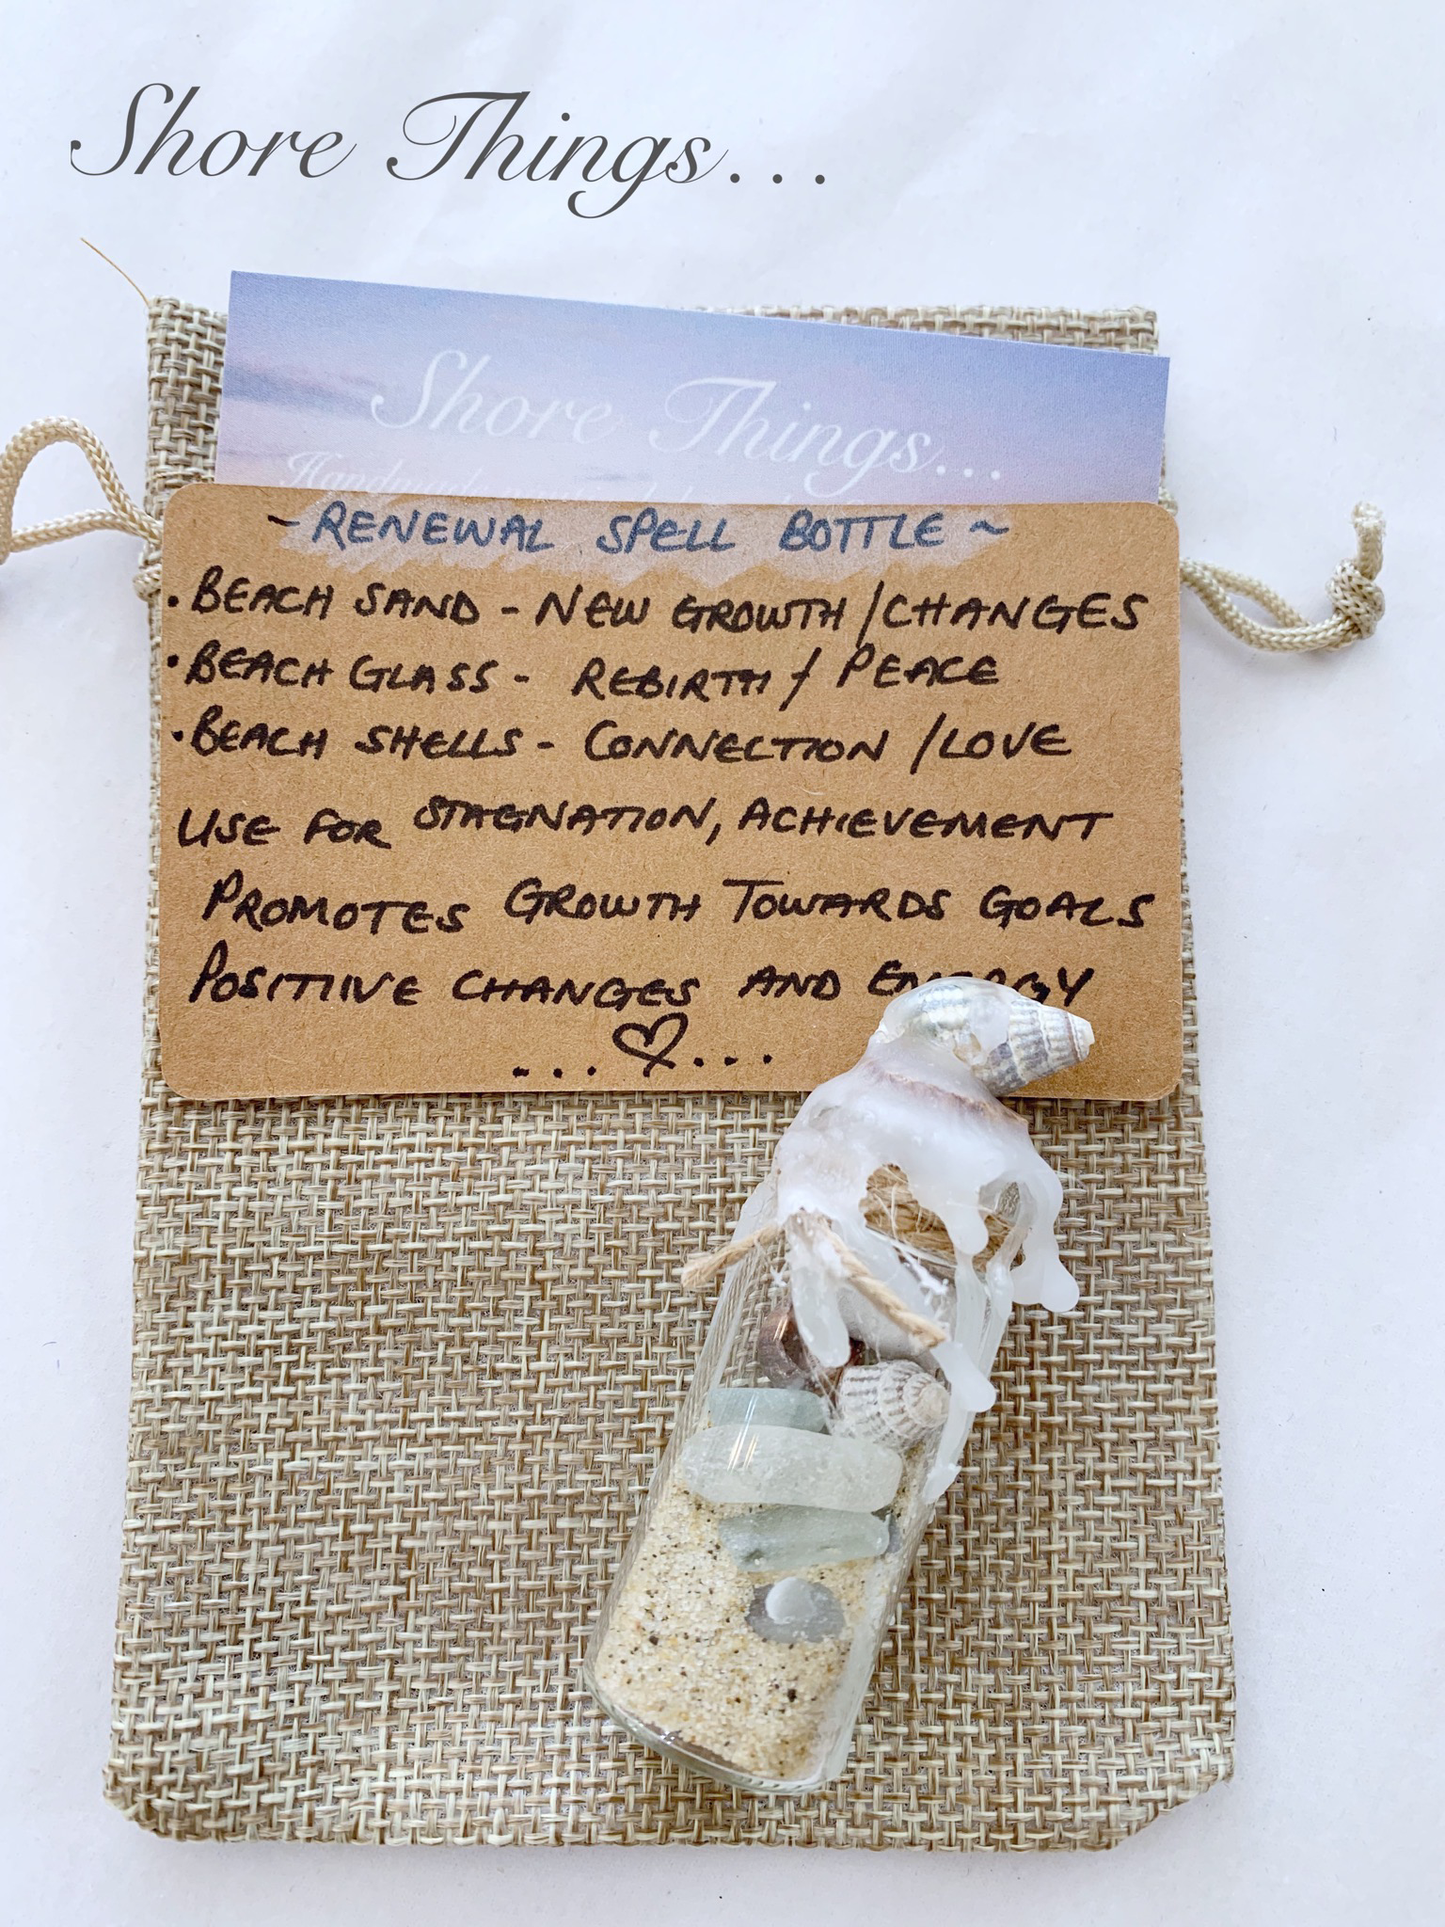 Shore Things...
Shore Things...
Handmade
~ RENEWAL SPELL BOTTLE ~
• BEACH SAND - NEW GROWTH / CHANGES
• BEACH GLASS - REBIRTH / PEACE
• BEACH SHELLS - CONNECTION / LOVE
USE FOR STAGNATION, ACHIEVEMENT
PROMOTES GROWTH TOWARDS GOALS
POSITIIVE CHANGES AND ENERGY
...♡...